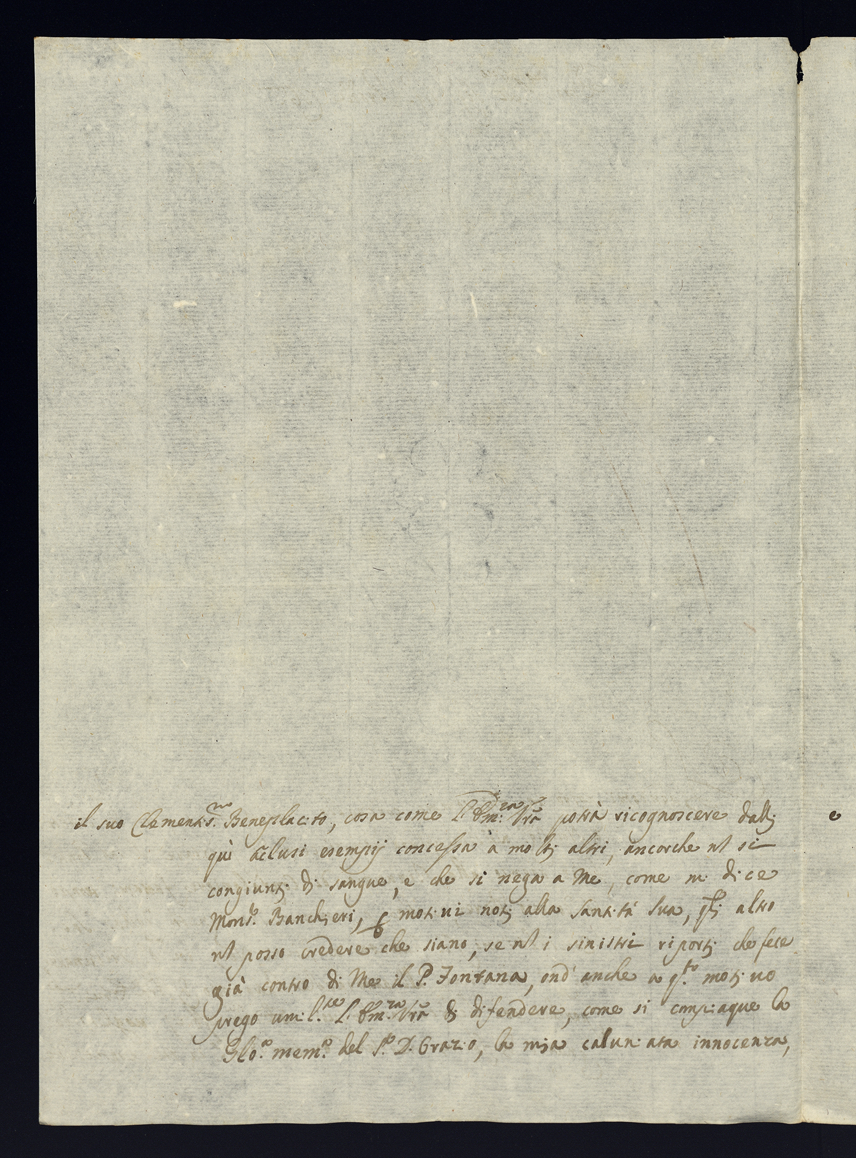 il suo Clementis.mo Beneplacito, cosa come l'Em.za Vrã potrà ricognoscere dalli
quì acclusi esempij concessa à molti altri, ancorche nõ si
congiunti di sangue, e che si nega a Me, come mi dice
Monsr. Banchieri, p motivi noti alla Santità Sua, qli altro
nõ posso credere che siano, se nõ i sinistri riporti che fece
già contro di Me il P. Fontana, ond' anche a q.to motivo
prego umil.te l'Em.za Vrã di difendere, come si compiaque la
Glo.a mem.a del Sr. D. Orazio, la mia caluniata innocenza,
e